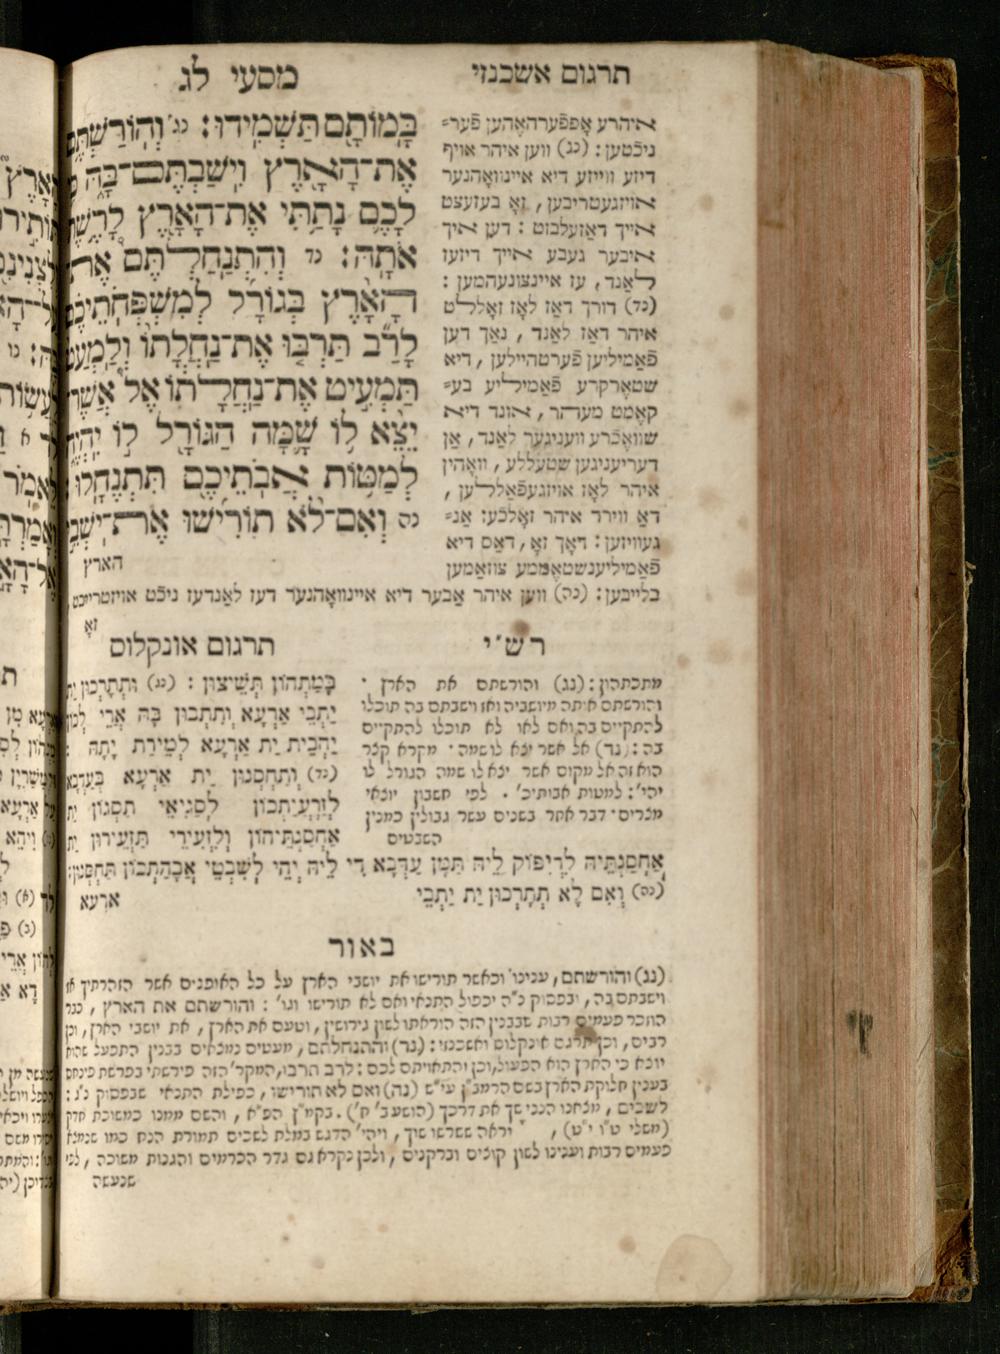 תרגום אשכנזי
מסעי לג
בָּמוֹתָם תַּשְׁמִידוּ׃ נג וְהוֹרַשְׁתֶּם
אֶת־הָאָרֶץ וִישַׁבְתֶּם־בָּהּ
לָכֶם נָתַתִּי אֶת־הָאָרֶץ לָרֶשֶׁת
אֹתָהּ׃ נד וְהִתְנַחַלְתֶּם אֶת־
הָאָרֶץ בְּגוֹרָל לְמִשְׁפְּחֹתֵיכֶם
לָרַב תַּרְבּוּ אֶת־נַחֲלָתוֹ וְלַמְעַט
תַּמְעִיט אֶת־נַחֲלָתוֹ אֶל אֲשֶׁר־
יֵצֵא לוֹ שָׁמָּה הַגּוֹרָל לוֹ יִהְיֶה
לְמַטּוֹת אֲבֹתֵיכֶם תִּתְנֶחָלוּ׃
נה וְאִם־לֹא תוֹרִישׁוּ אֶת־יֹשְׁבֵי
הארץ
איהרע אָפּפֿערהאָהען פֿער־
ניכֿטען : (נג) ווען איהר אויף
דיזע ווייזע דיא איינוואָהנער
אויזגעטריבען, זאָ בעזעצט
אייך דאַזעלבסט : דען איך
איבער געבע אייך דיזעז
לאַנד, עז איינצונעהמען :
(נד) דורך דאַז לאָז זאָללט
איהר דאַז לאַנד, נאַך דען
פֿאַמיליען פֿערטהיילען, דיא
שטאַרקרע פֿאַמיליע בע־
קאָמט מעהר, אונד דיא
שוואַכֿרע וועניגער לאַנד, אַן
דעריעניגען שטעללע, וואָהין
איהר לאָז אויזגעפֿאַללען,
דאַ ווירד איהר זאָלכֿע: אַנ־
געוויזען : דאָך זאָ, דאַס דיא
פֿאַמיליענשטאַממע צוזאַמען
בלייבען : (נה) ווען איהר אַבער דיא איינוואָהנער דעז לאַנדעז ניכֿט אויזטרייבט,
זאָ
רש״י
מתכתהין : (נג) והורשתם את הארץ .
והורשתם אותה מיושביה ואז וישבתם בה תוכלו
להתקיים בה ואם לאו לא תוכלו להתקיים
בה : (נד) אל אשר יצא לו שמה . מקרא קצר
הוא זה אל מקום אשר יצא לו שמה הגורל לו
יהי׳ : למטות אבותיכ׳ . לפי חשבון יוצאי
מצרים . דבר אחר בשנים עשר גבולין כמנין
השבטים
תרגום אונקלוס
בָּמָתְהוֹן תְּשֵׁיצוּן : (נג) וּתְתָרְכוּן יָת
יָתְבֵי אַרְעָא וְתִתְּבוּן בַּהּ אֲרֵי לְכוֹן
יְהָבִית יָת אַרְעָא לְמֵירַת יָתַהּ :
(נד) וְתַחְסְנוּן יָת אַרְעָא בְּעַדְבָא
לְזַרְעֲיָתְכוֹן לְסַגִּיאֵי תַסְגוּן יָת
אַחֲסַנְתֵּיהוֹן וְלִזְעֵירֵי תַּזְעֵירוּן יָת
אַחֲסַנְתֵּיהּ לִדְיִפּוֹק לֵיהּ תַּמָּן עַדְבָא דִי לֵיהּ יְהֵי לְשִׁבְטֵי אֲבָהָתְכוֹן תַּחְסְנוּן:
(נה) וְאִם לָא תְתָרְכוּן יָת יָתְבֵי
ארעא
באור
(נג) והורשתם, ענינו וכאשר תורישו את יושבי הארץ על כל האופנים אשר הזהרתיך אז
וישבתם בה, ובפסוק נ״ה יכפול התנאי ואם לא תורישו וגו׳ : והורשתם את הארץ, כבר
הוזכר פעמים רבות שבבנין הזה הוראתו לשון גירושין, וטעם את הארץ, את יושבי הארץ, וכן
רבים, וכן תרגם אונקלוס ואשכנזי : (נד) והתנחלתם, מעטים נמצאים בבנין התפעל שהוא
יוצא כי הארץ הוא הפעול, וכן והתאויתם לכם : לרב תרבו, המקר׳ הזה פירשתי בפרשת פינחס
בענין חלוקת הארץ בשם הרמב״ן עי״ש (נה) ואם לא תורישו, כפילת התנאי שבפסוק נ״ג :
לשכים, מצאנו הנני שך את דרכך (הושע ב׳ ח׳) . בקמ״ץ הפ״א, והשם ממנו כמשוכת חדק
(משלי ט״ו י״ט), יראה ששרשו שיך, ויהי׳ הדגש במלת לשכים תמורת הנח כמו שנמצא
פעמים רבות וענינו לשון קוצים וברקנים, ולכן נקרא גם גדר הכרמים והגנות משוכה, לפי
שנעשה